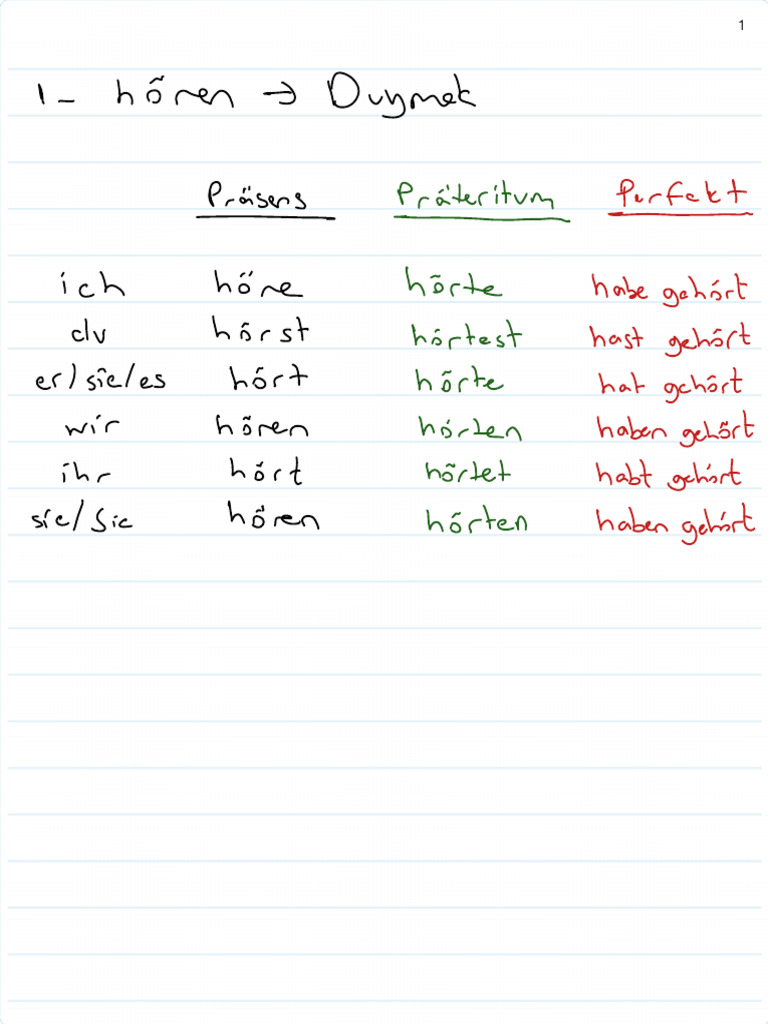 1
1- hören → Duymak
Präsens Präteritum Perfekt
ich höre hörte habe gehört
du hörst hörtest hast gehört
er/sie/es hört hörte hat gehört
wir hören hörten haben gehört
ihr hört hörtet habt gehört
sie/Sie hören hörten haben gehört